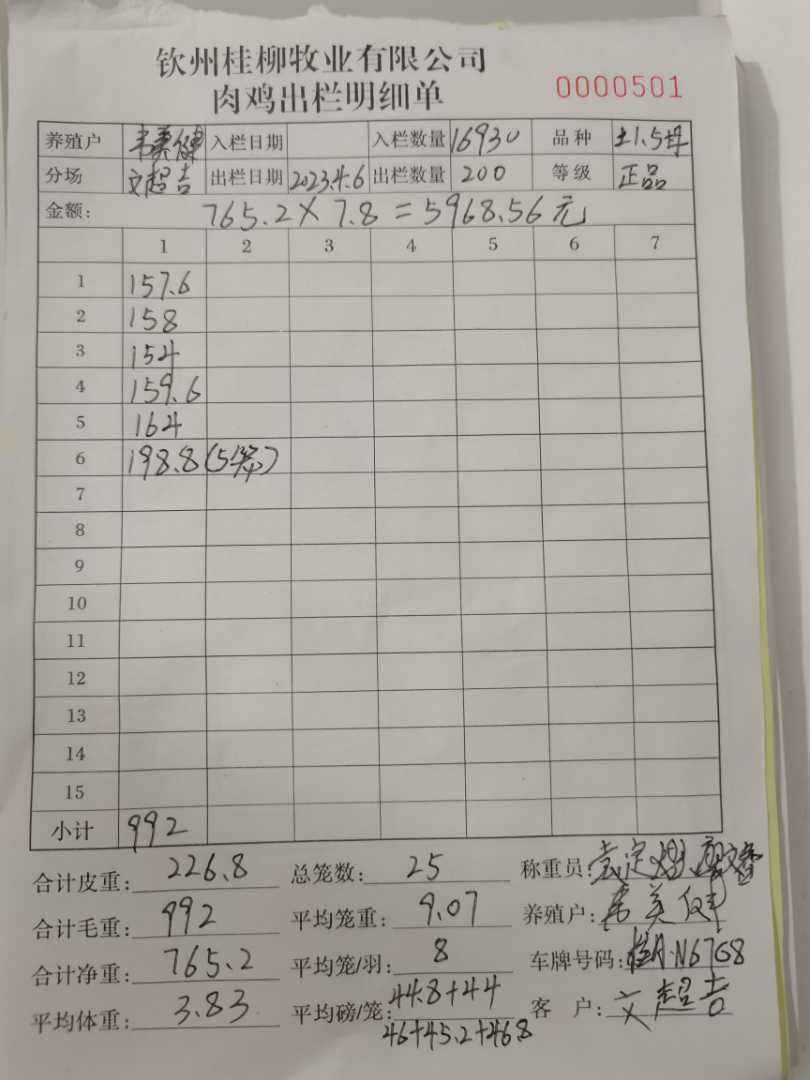 钦州桂柳牧业有限公司
肉鸡出栏明细单 0000501
养殖户 韦美健 入栏日期 入栏数量 16930 品种 土1.5母
分场 文超吉 出栏日期 2023.4.6 出栏数量 200 等级 正品
金额: 765.2×7.8=5968.56元
1 2 3 4 5 6 7
1 157.6
2 158
3 154
4 159.6
5 164
6 198.8(5笼)
7
8
9
10
11
12
13
14
15
小计 992
合计皮重: 226.8 总笼数: 25 称重员:
合计毛重: 992 平均笼重: 9.07 养殖户: 韦美健
合计净重: 765.2 平均笼/羽: 8 车牌号码: 桂A·N67G8
平均体重: 3.83 平均磅/笼: 44.8+44 客户: 文超吉
46+45.2+46.8